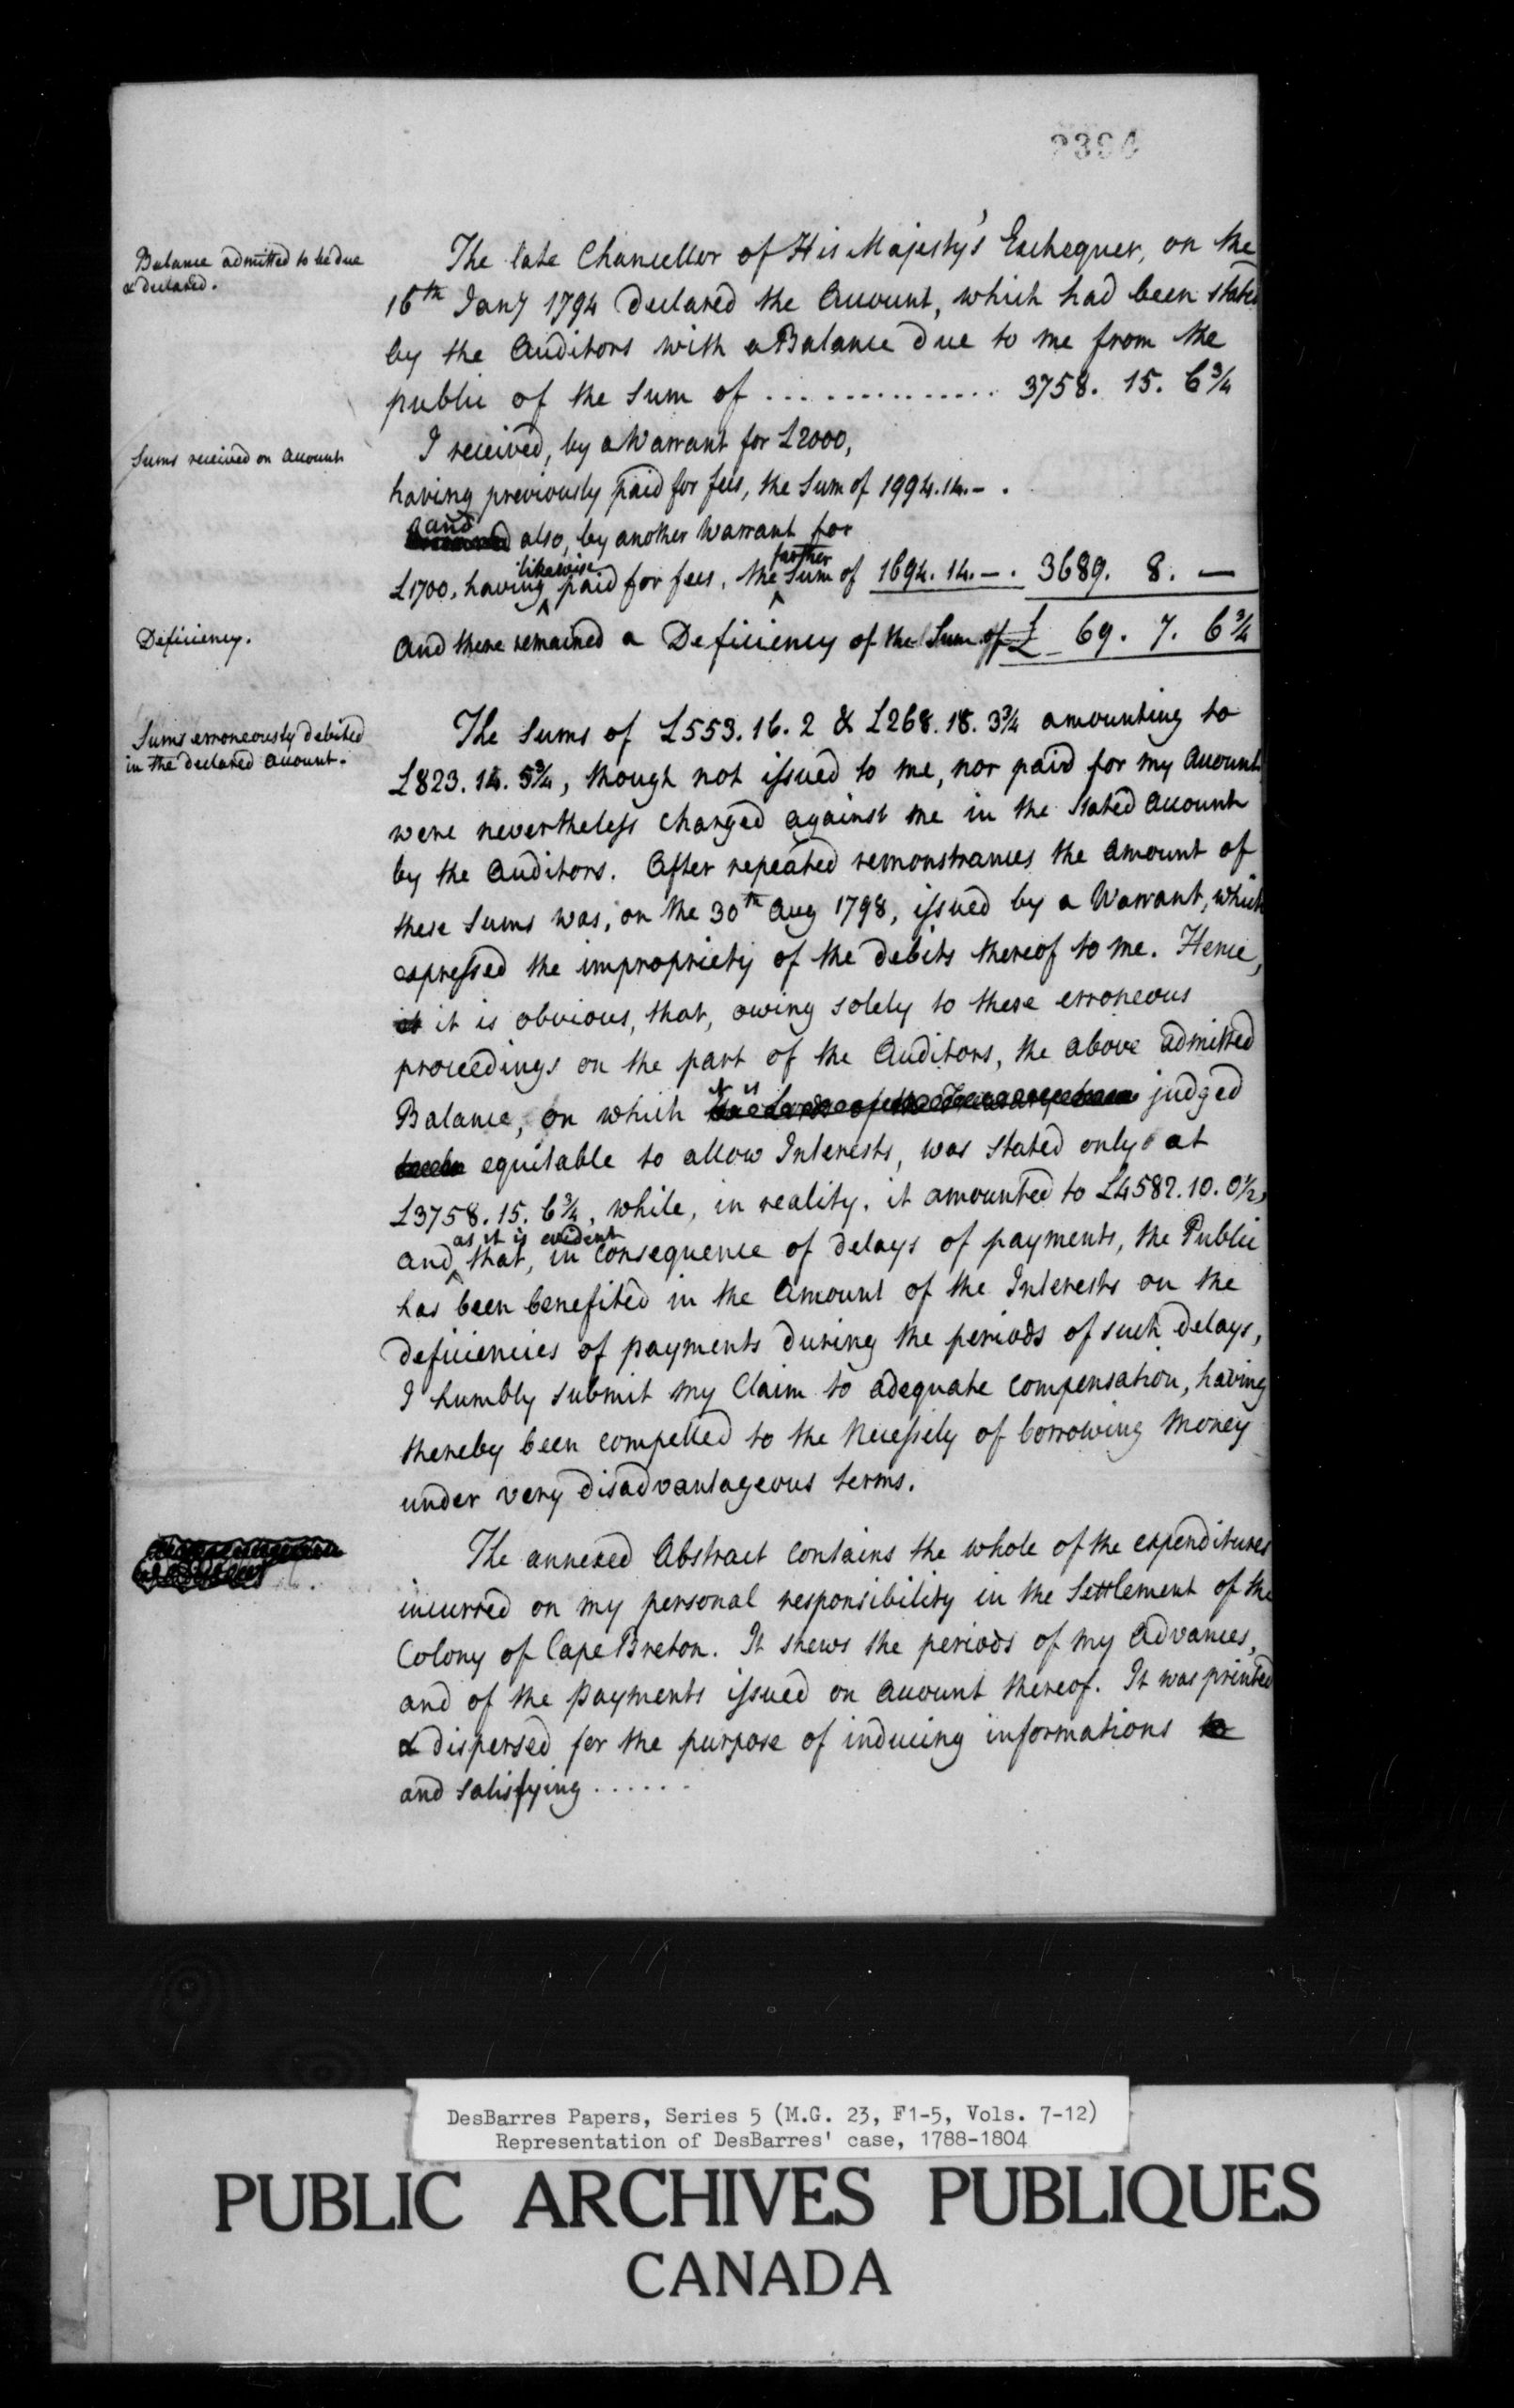 2394
Balance admitted to be due
& declared.
The late Chancellor of His Majesty's Exchequer, on the
16th Jany 1794 declared the Account, which had been stated
by the Auditors with a Balance due to me from the
public of the Sum of .............. 3758. 15. 6¾
Sums received on Account
I received, by a Warrant for £2000,
having previously paid for fees, the Sum of 1994. 14. – .
and
also, by another Warrant for
likewise farther
£1700, having paid for fees, the Sum of 1694. 14. – . 3689. 8. –
Deficiency.
And there remained a Deficiency of the Sum of £ 69. 7. 6¾
Sums erroneously debited
in the declared Account.
The Sums of £553. 16. 2 & £268. 18. 3¾ amounting to
£823. 14. 5¾, though not issued to me, nor paid for my Account
were nevertheless charged against me in the stated Account
by the Auditors. After repeated remonstrances the Amount of
these Sums was, on the 30th Aug 1798, issued by a Warrant, which
expressed the impropriety of the debits thereof to me. Hence,
it is obvious, that, owing solely to these erroneous
proceedings on the part of the Auditors, the above admitted
it is
Balance, on which the Lords of the Treasury have judged
equitable to allow Interests, was stated only at
£3758. 15. 6¾, while, in reality, it amounted to £4582. 10. 0½,
as it is evident
and that, in consequence of delays of payments, the Public
has been benefited in the Amount of the Interests on the
deficiencies of payments during the periods of such delays,
I humbly submit my Claim to adequate compensation, having
thereby been compelled to the Necessity of borrowing Money
under very disadvantageous terms.
The annexed Abstract contains the whole of the expenditures
incurred on my personal responsibility in the Settlement of the
Colony of Cape Breton. It shews the periods of my Advances,
and of the payments issued on Account thereof. It was printed
& dispersed for the purpose of inducing informations to
and satisfying ......
DesBarres Papers, Series 5 (M.G. 23, F1-5, Vols. 7-12)
Representation of DesBarres' case, 1788-1804
PUBLIC ARCHIVES PUBLIQUES
CANADA